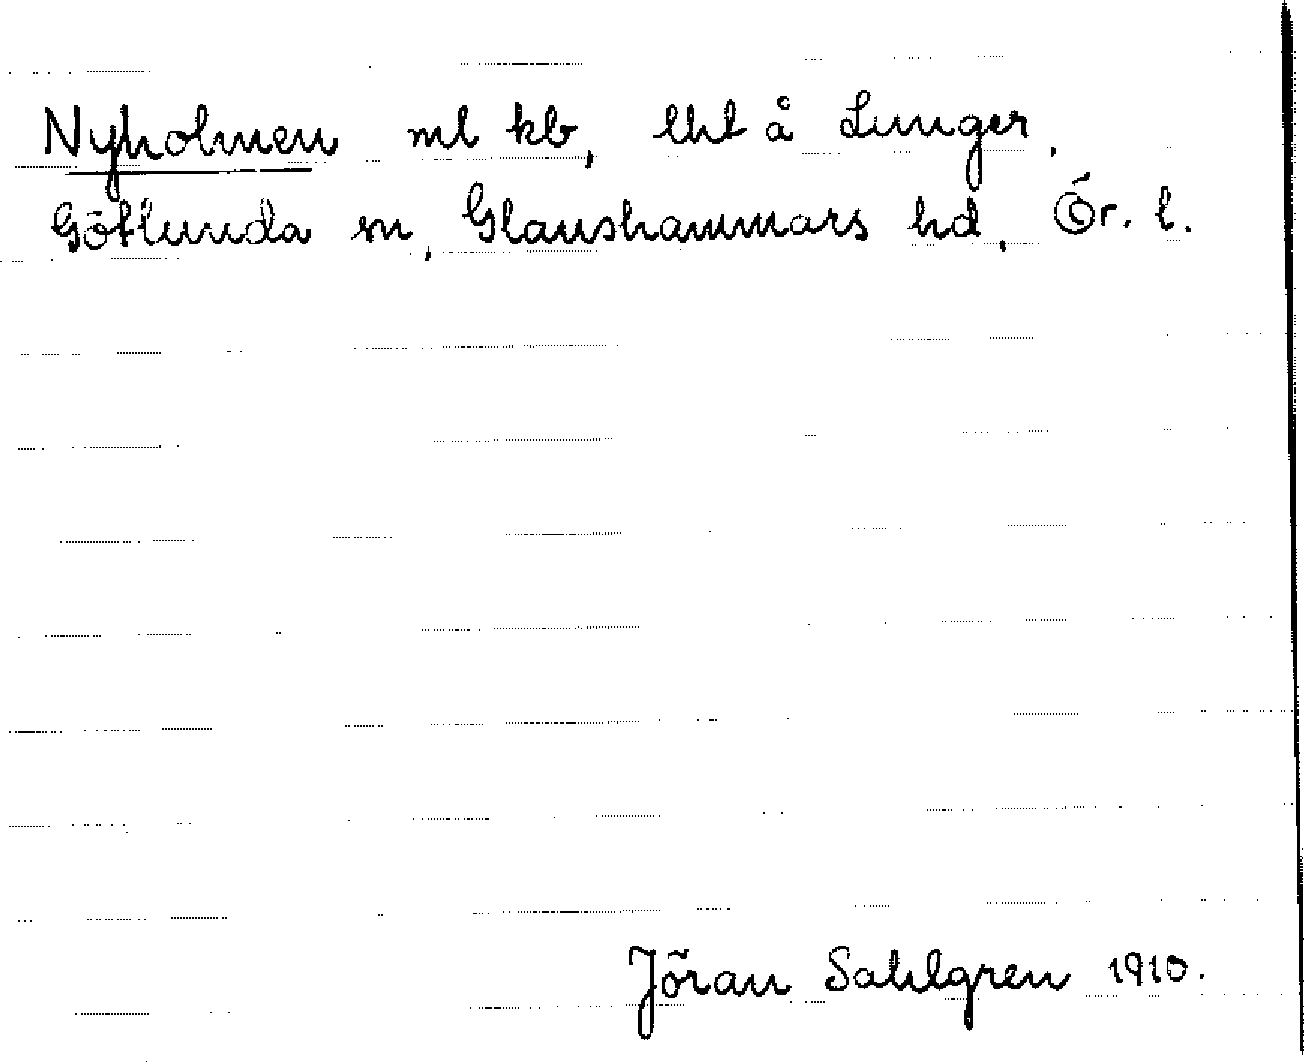 Nyholmen ml kb, lht å Lunger.
Götlunda sn, Glanshammars hd, Ör. l.
Jöran Sahlgren 1910.